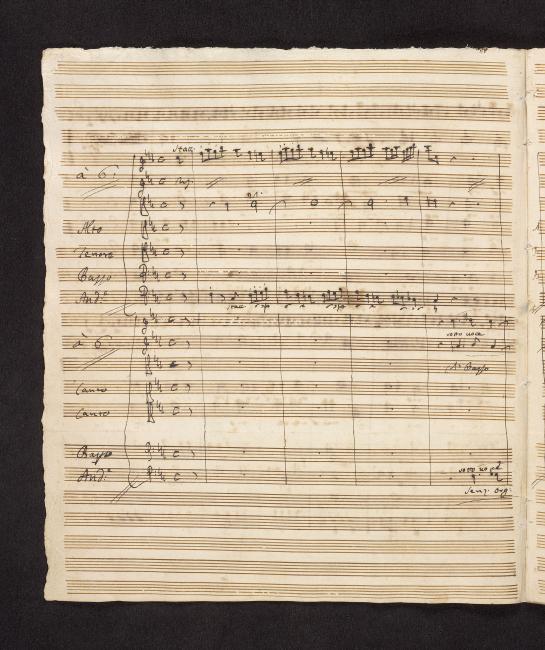 stacc.
à 6.
Alto
Tenore
Basso
And.e
stacc.
à 6.
sotto voce
Canto
Canto
Basso
And.e
sotto voce
Senz: Org: